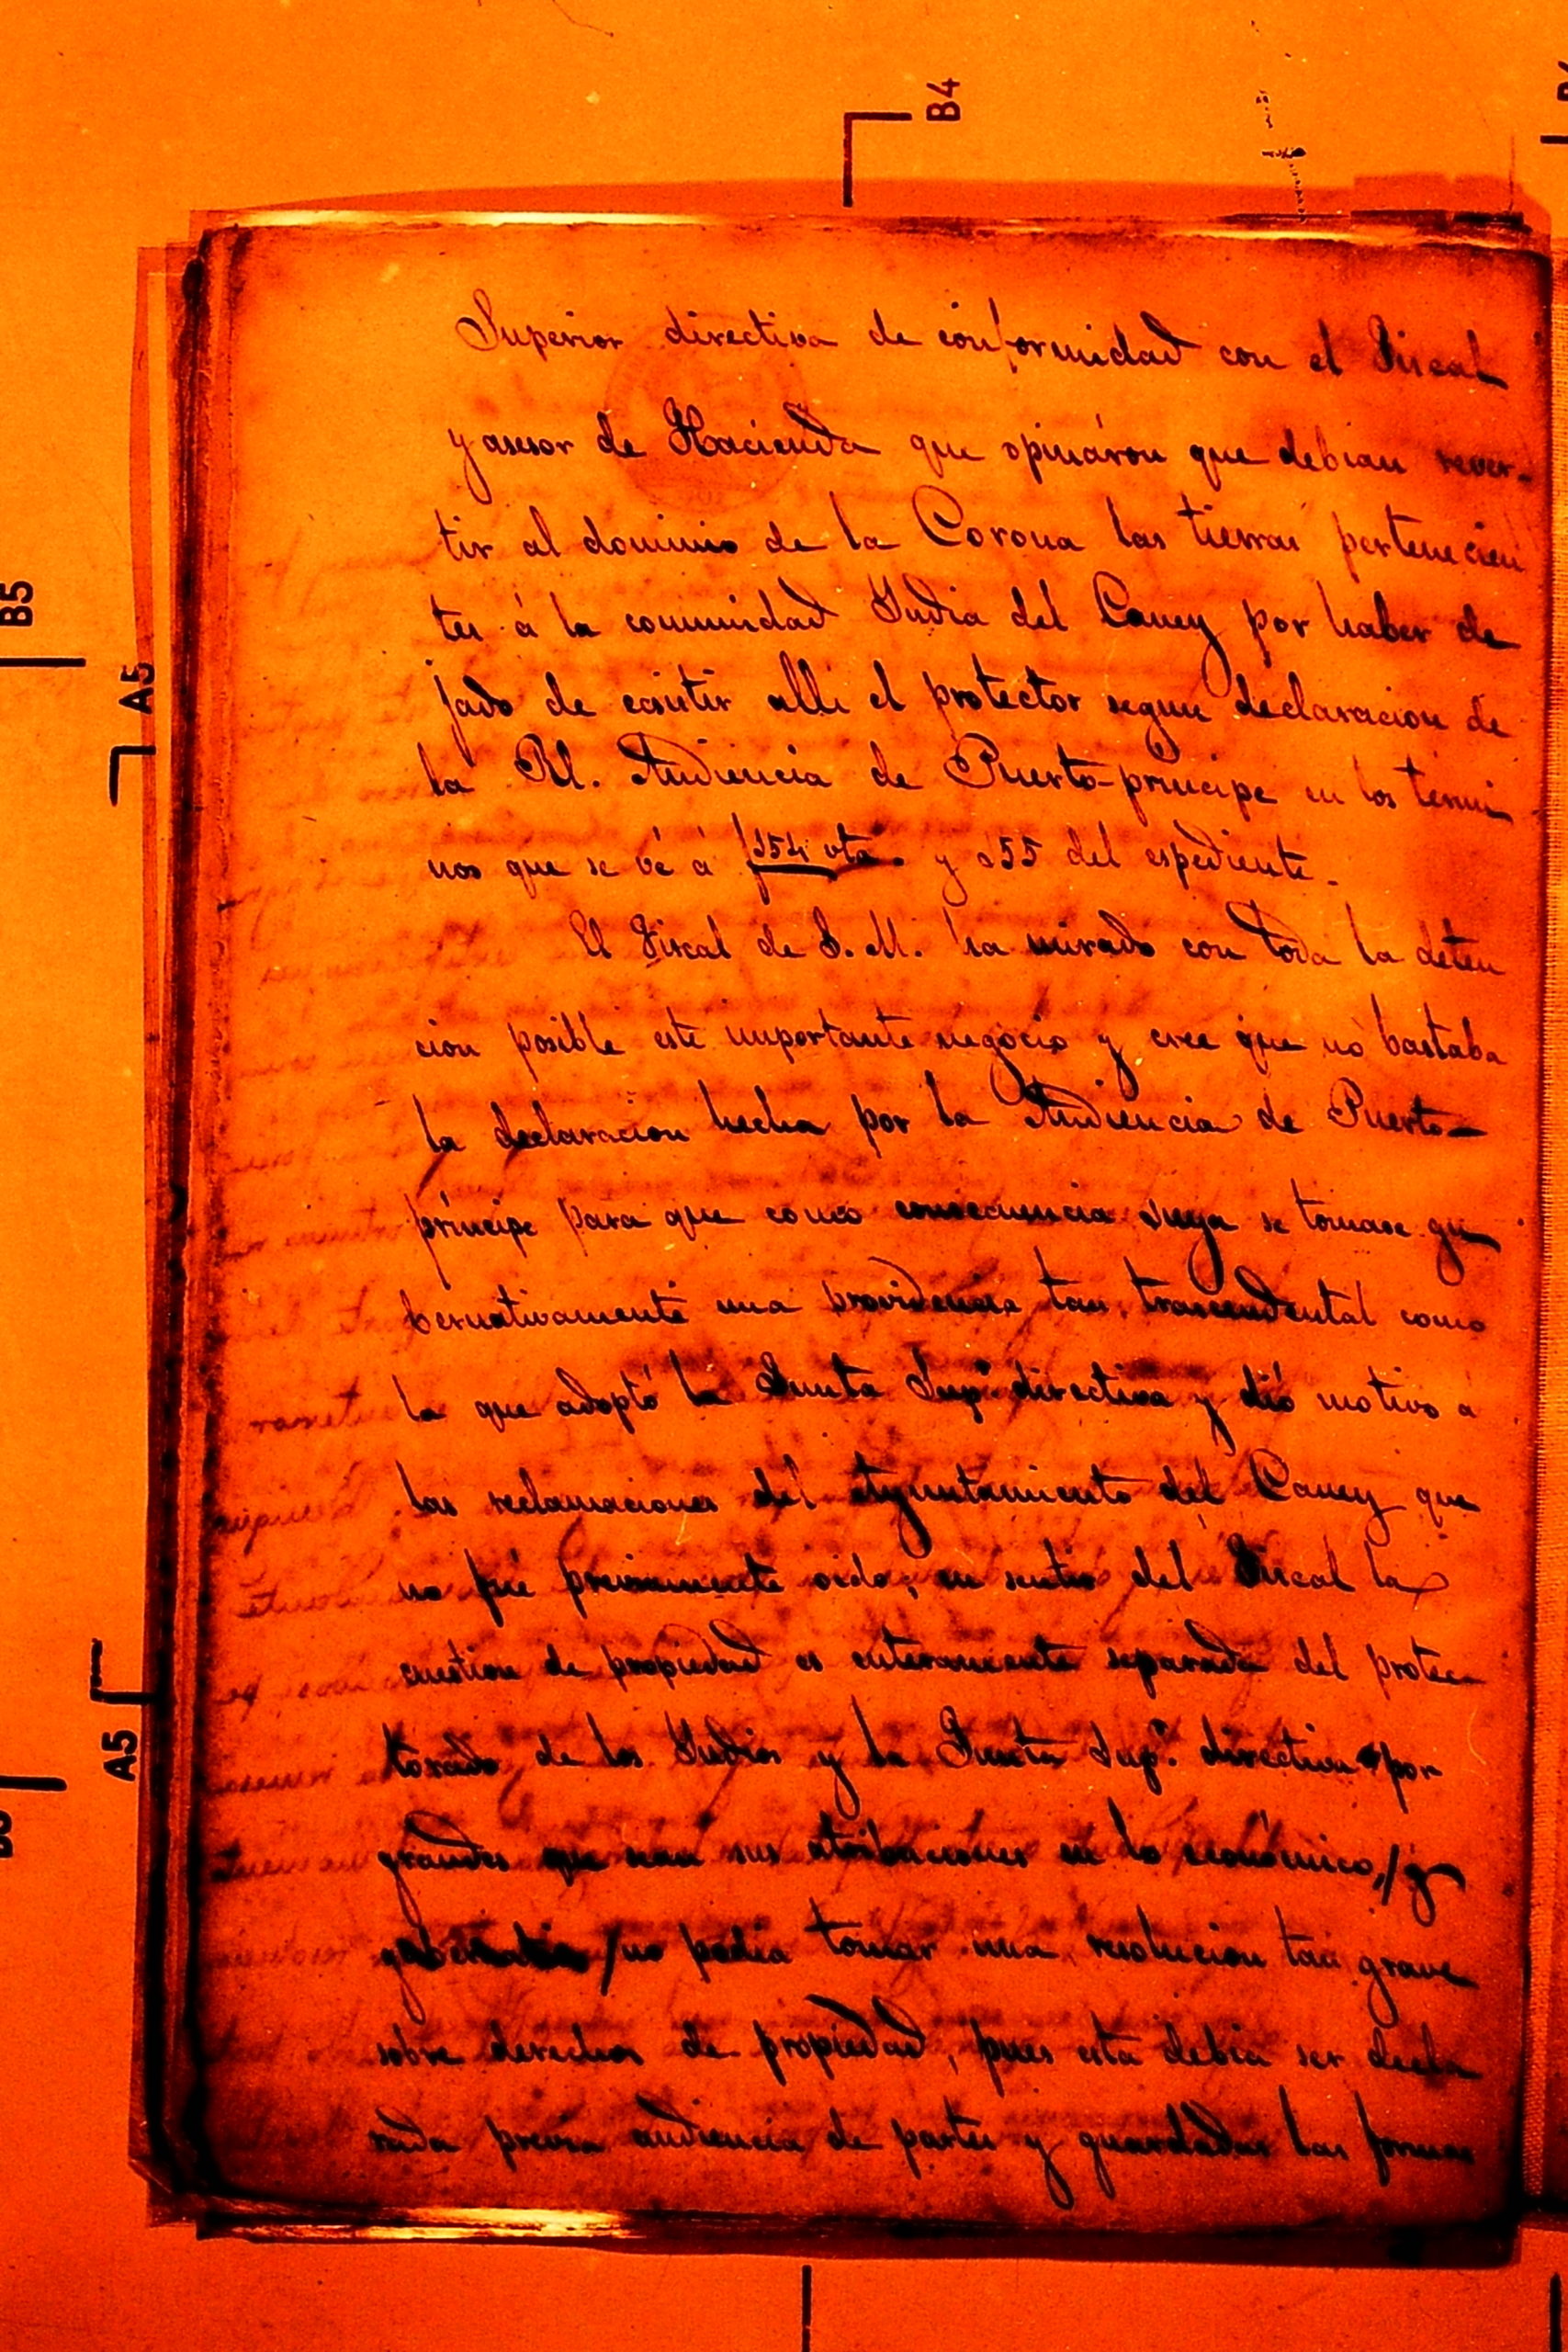 B4
Superior directiva de conformidad con el Fiscal
y asesor de Hacienda que opináron que debian rever-
tir al dominio de la Corona las tierras pertenecien
tes á la comunidad India del Caney por haber de
jado de ecsistir alli el protector segun declaracion de
la Rl. Audiencia de Puerto-principe en los térmi
nos que se vé á f 154 vta. y 155 del espediente.
El Fiscal de S. M. ha mirado con toda la deten
cion posible este importante negocio y cree que no bastaba
la declaracion hecha por la Audiencia de Puerto-
príncipe para que como consecuencia suya se tomase gu
bernativamente una providencia tan trascendental como
la que adoptó la Junta Supr directiva y dió motivo á
las reclamaciones del Ayuntamiento del Caney que
no fué previamente oido; en sentir del Fiscal la
cuestion de propiedad es enteramente separada del protec
torado de los Indios y la Junta Supr. directiva por
grandes que sean sus atribuciones en lo económico,/y
/no podia tomar una resolucion tan grave
sobre derechos de propiedad, pues esta debia ser decla
rada previa audiencia de partes y guardadas las formas
B5
A5
A5